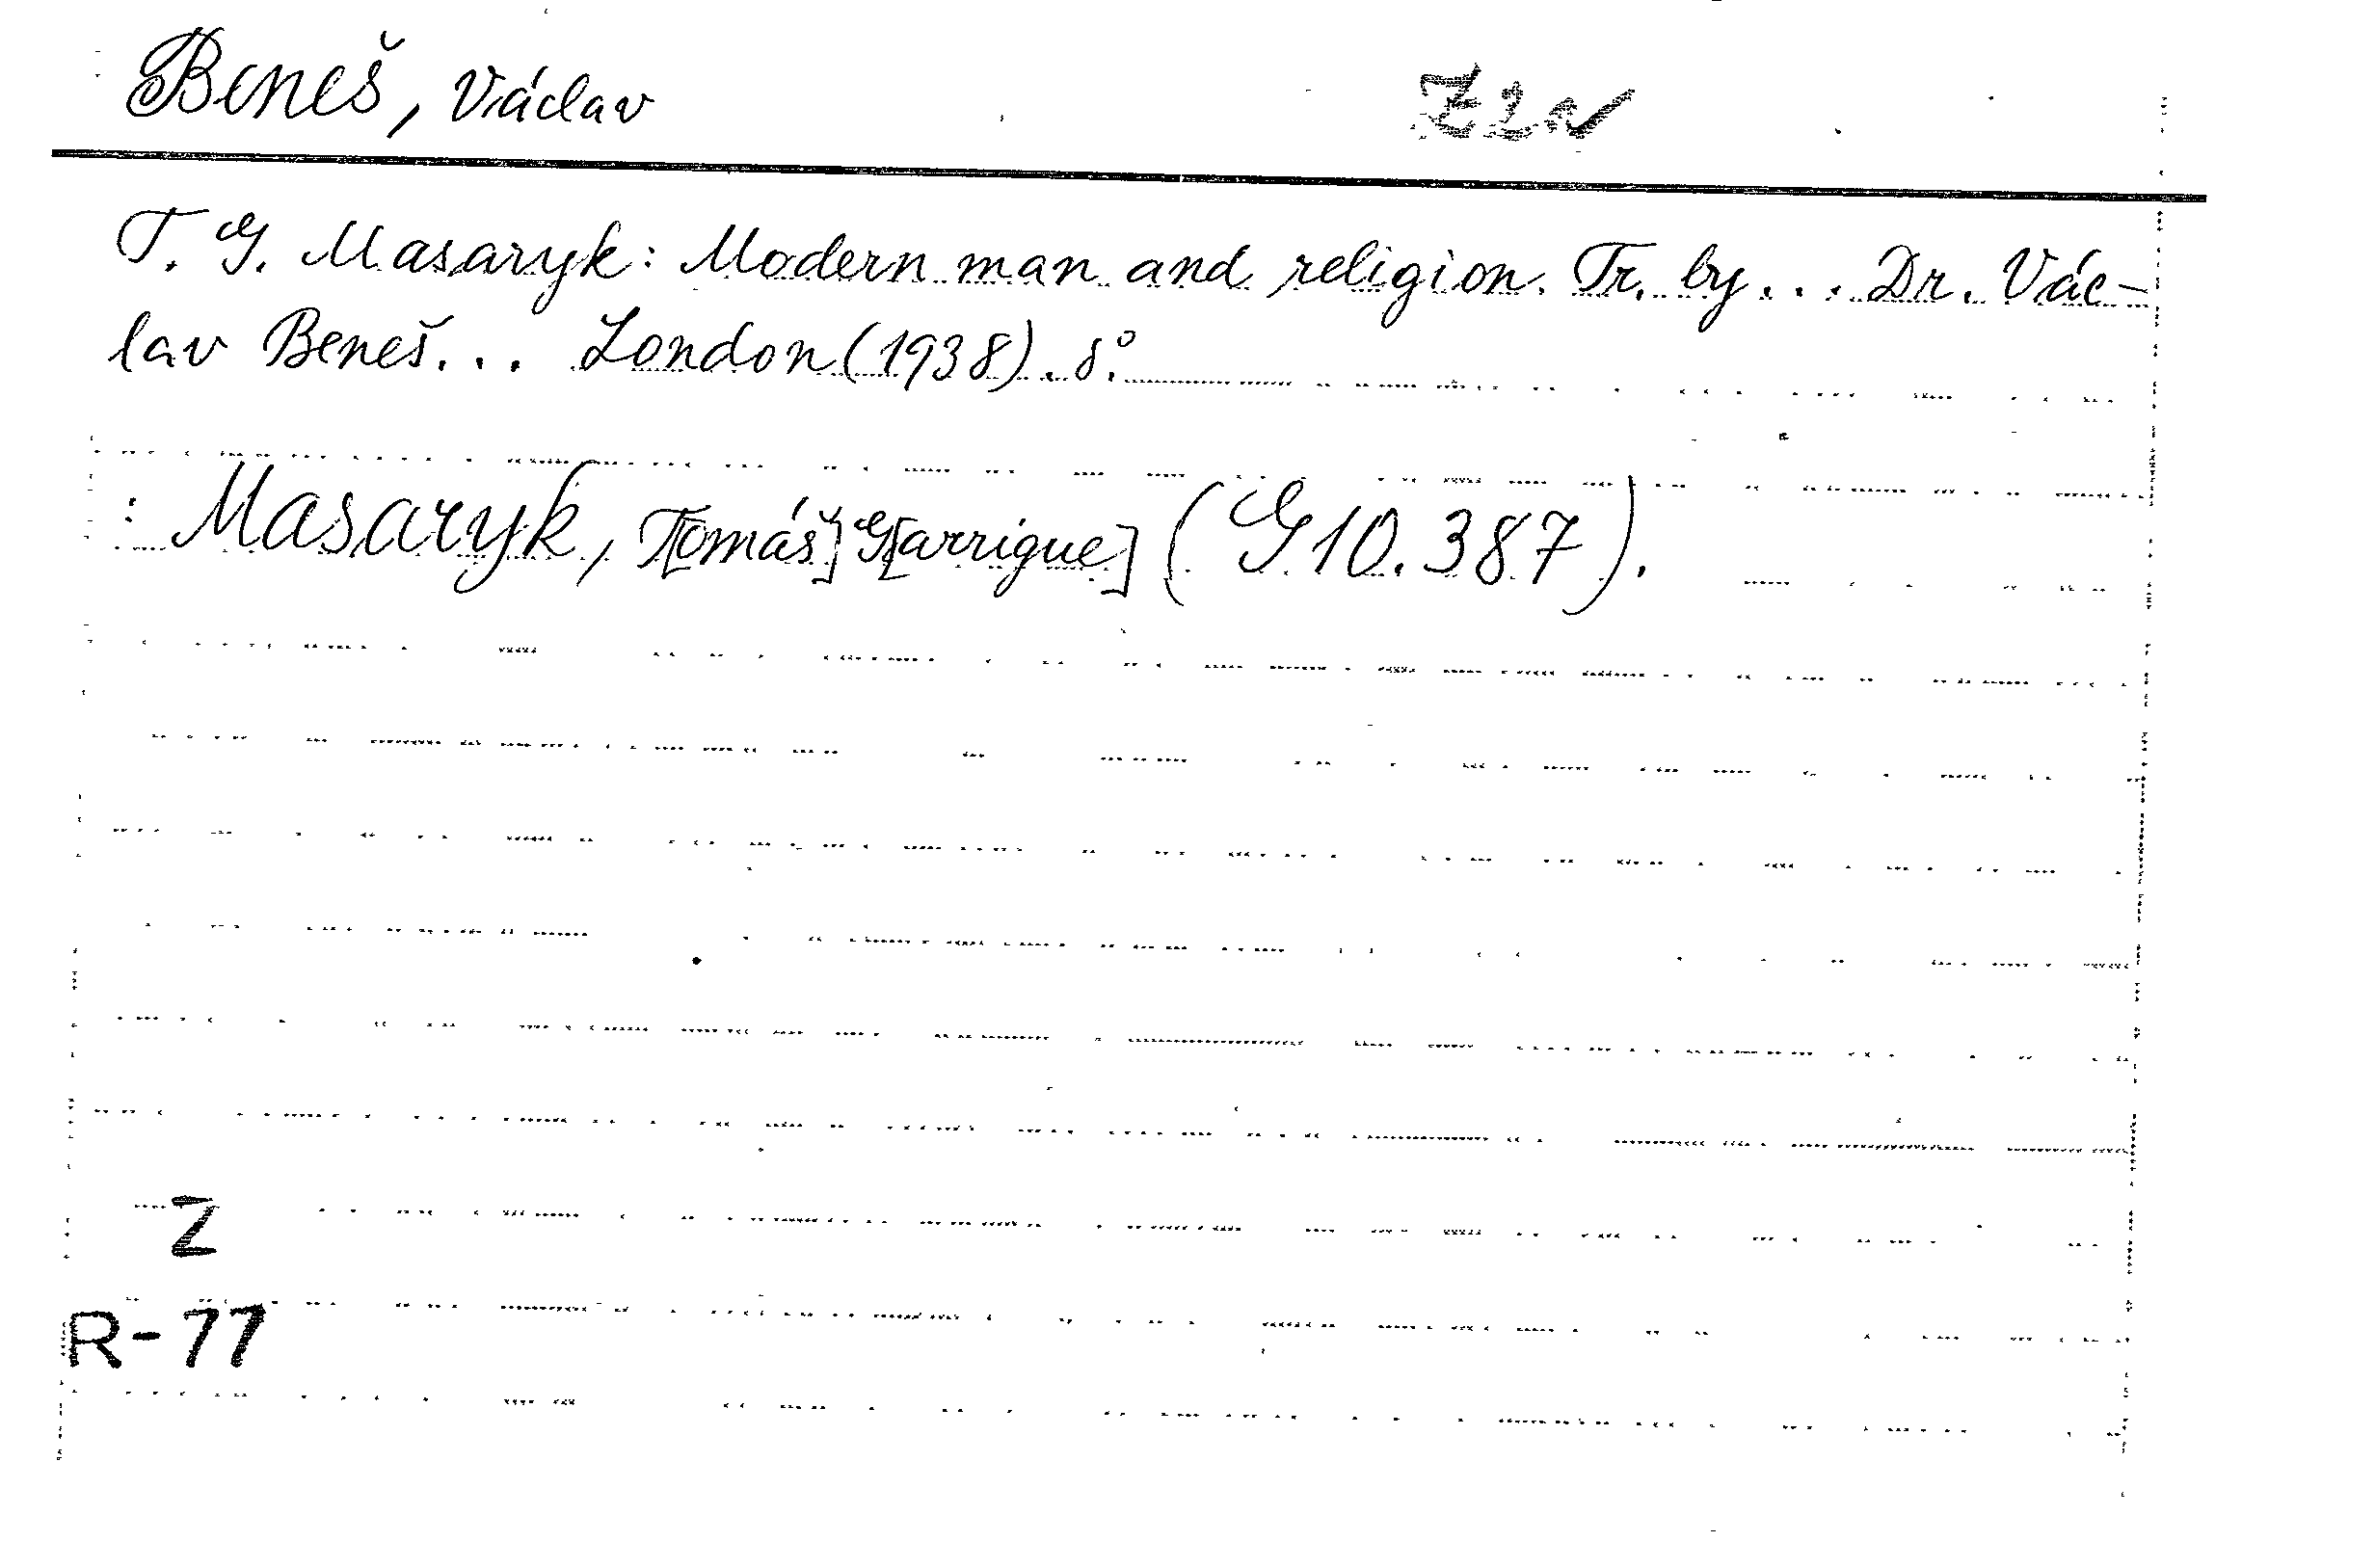 Beneš, Václav
T. G. Masaryk: Modern man and religion. Tr. by... Dr. Vác-
lav Beneš... London (1938). 8°.
: Masaryk, T[omáš] G[arrigue] (G 10.387).
Z
R-77